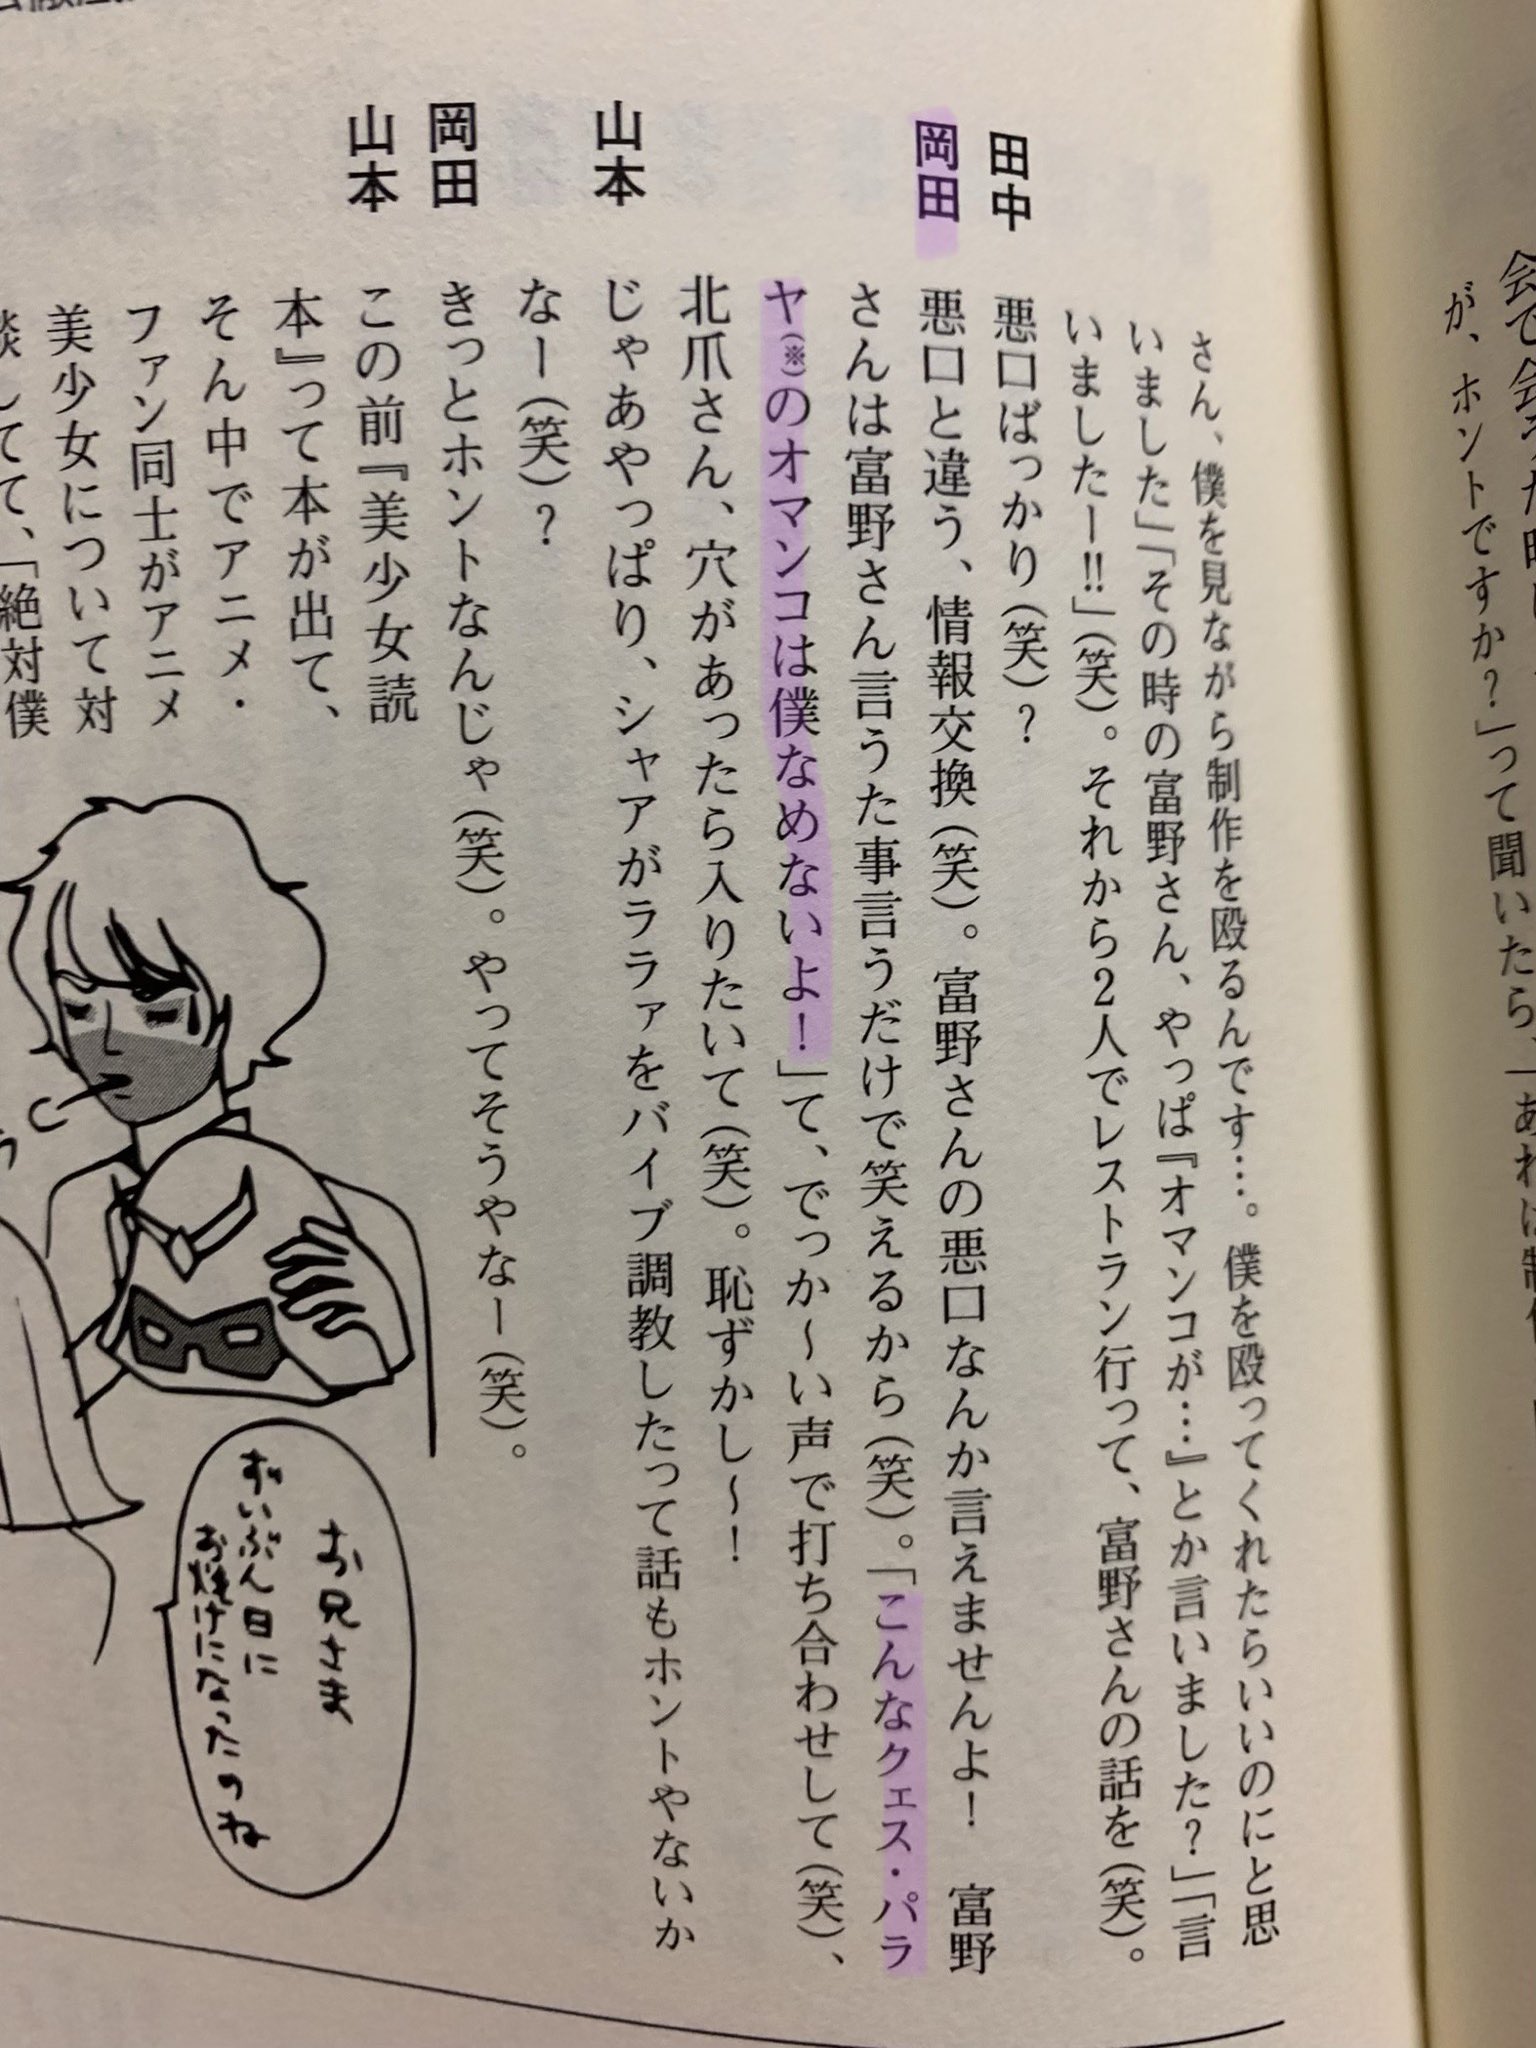 が、ホントですか？」って聞いたら、「あれは制
さん、僕を見ながら制作を殴るんです…。僕を殴ってくれたらいいのにと思
いました」「その時の富野さん、やっぱ『オマンコが…』とか言いました？」「言
いましたー!!」(笑)。それから2人でレストラン行って、富野さんの話を(笑)。
田中 悪口ばっかり(笑)？
岡田 悪口と違う、情報交換(笑)。富野さんの悪口なんか言えませんよ！ 富野
さんは富野さん言うた事言うだけで笑えるから(笑)。「こんなクェス・パラ
ヤ(※)のオマンコは僕なめないよ！」て、でっか〜い声で打ち合わせして(笑)、
北爪さん、穴があったら入りたいて(笑)。恥ずかし〜！
山本 じゃあやっぱり、シャアがララァをバイブ調教したって話もホントやないか
なー(笑)？
岡田 きっとホントなんじゃ(笑)。やってそうやなー(笑)。
山本 この前『美少女読
本』って本が出て、
そん中でアニメ・
ファン同士がアニメ
美少女について対
談してて、「絶対僕
お兄さま
ずいぶん日に
お焼けになったのね